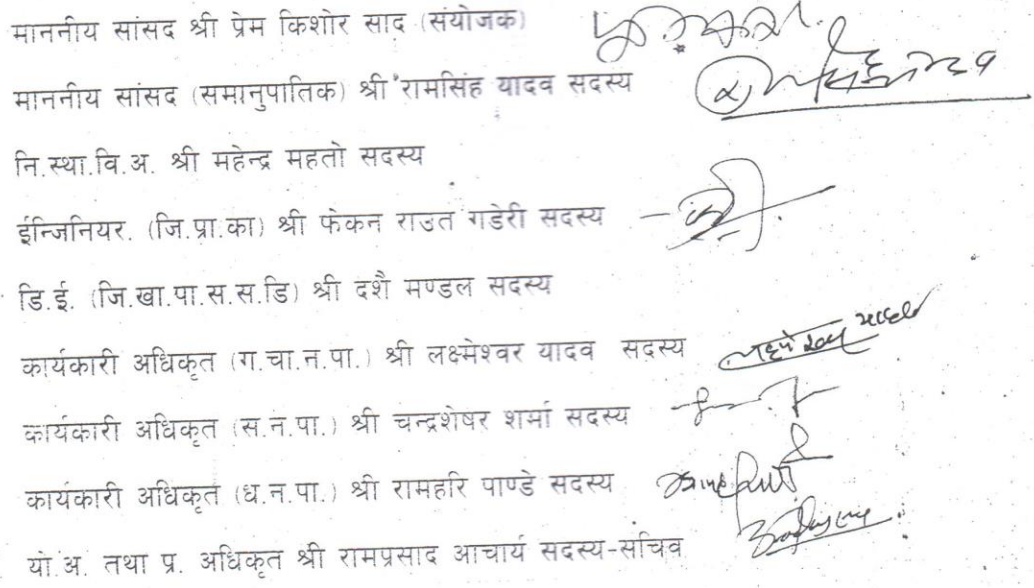 माननीय सांसद श्री प्रेम किशोर साद (संयोजक)
माननीय सांसद (समानुपातिक) श्री रामसिंह यादव सदस्य
नि.स्था.वि.अ. श्री महेन्द्र महतो सदस्य
ईन्जिनियर. (जि.प्रा.का) श्री फेकन राउत गडेरी सदस्य
डि.ई. (जि.खा.पा.स.स.डि) श्री दशै मण्डल सदस्य
कार्यकारी अधिकृत (ग.चा.न.पा.) श्री लक्ष्मेश्वर यादव सदस्य
कार्यकारी अधिकृत (स.न.पा.) श्री चन्द्रशेषर शर्मा सदस्य
कार्यकारी अधिकृत (ध.न.पा.) श्री रामहरि पाण्डे सदस्य
यो.अ. तथा प्र. अधिकृत श्री रामप्रसाद आचार्य सदस्य-सचिव